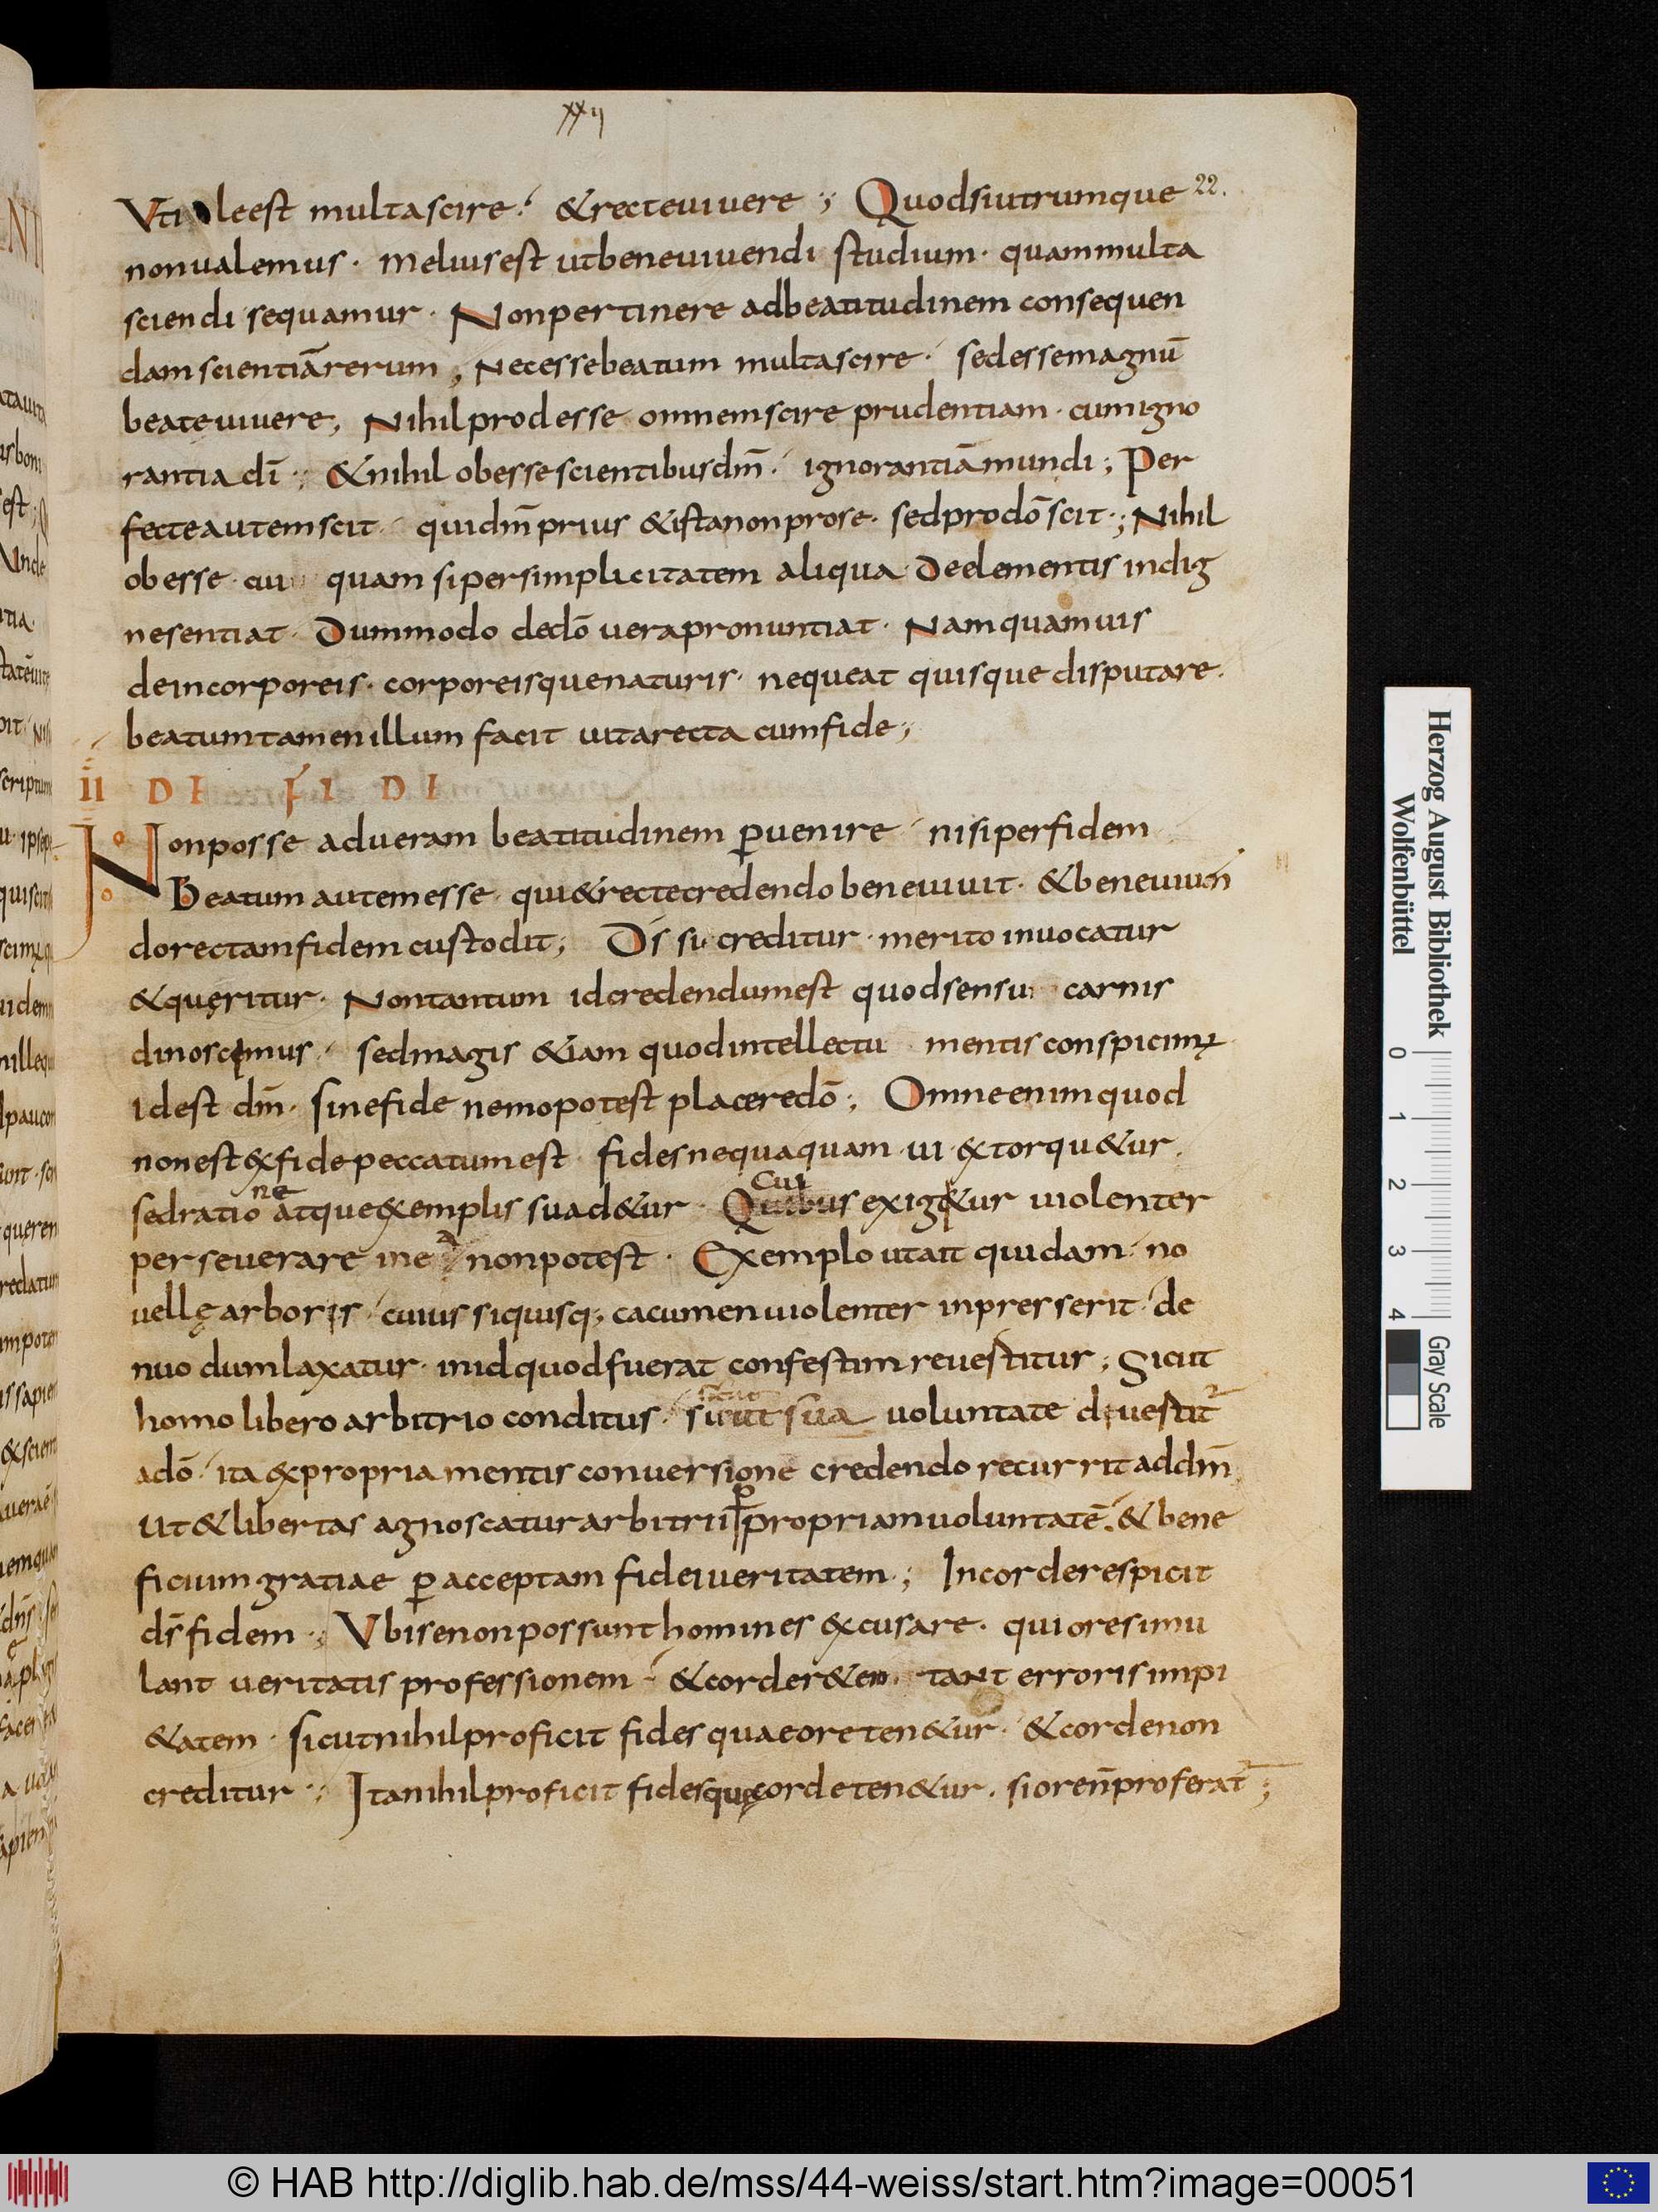 xxii
Vtile est multa scire · & recte uiuere ; Quod si utrumque 22.
non ualemus · melius est ut bene uiuendi studium · quam multa
sciendi sequamur · Non pertinere ad beatitudinem consequen
dam scientiā rerum ; Necesse beatum multa scire · sed esse magnū
beate uiuere ; Nihil prodesse omnem scire prudentiam · cum igno
rantia dī · & nihil obesse scientibus dm̄ · ignorantiā mundi ; Per
fecte autem scit · qui dm̄ prius & ista non pro se · sed pro dō scit ; Nihil
obesse cui quam si per simplicitatem aliqua de elementis indig
ne sentiat · Dummodo de dō uera pronuntiat · Nam quamuis
de incorporeis · corporeisque naturis · nequeat quisque disputare ·
beatum tamen illum facit uita recta cum fide ;
II DE FIDE
Non posse ad ueram beatitudinem ꝑuenire · nisi per fidem
Beatum autem esse · qui & recte credendo bene uiuit · & bene uiuen
do rectam fidem custodit ; Dī si creditur · merito inuocatur
& quęritur · Non tantum id credendum est quod sensu carnis
dinoscimus · sed magis &iam quod intellectu mentis conspicimꝰ
id est dm̄ · sine fide nemo potest placere dō ; Omne enim quod
non est ex fide peccatum est · fides nequaquam ui extorqu&ur ·
ne Cui
sed ratio atque exemplis suad&ur · Quibus exig&ur uiolenter
perseuerare in e non potest · Exemplo ut ait quidam · no
uellę arboris · cuius si quisq; cacumen uiolenter inpresserit · de
nuo dum laxatur · in id quod fuerat confestim reuestitur ; Sicut
homo libero arbitrio conditus · sicut sua uoluntate diuestit̄
a dō · ita ex propria mentis conuersione credendo recurrit ad dm̄
Ut & libertas agnoscatur arbitrii ꝑ propriam uoluntatē · & bene
ficium gratiae ꝑ acceptam fidei ueritatem ; In corde respicit
ds̄ fidem ; Vbi se non possunt homines excusare · qui ore simu
lant ueritatis professionem · & corde r&en tant erroris impi
&atem · sicut nihil proficit fides quae ore ten&ur · & corde non
creditur ; Ita nihil proficit fides quę corde ten&ur · si ore n̄ proferat̄ ;
Herzog August Bibliothek
Wolfenbüttel
0 1 2 3 4
Gray Scale
© HAB http://diglib.hab.de/mss/44-weiss/start.htm?image=00051